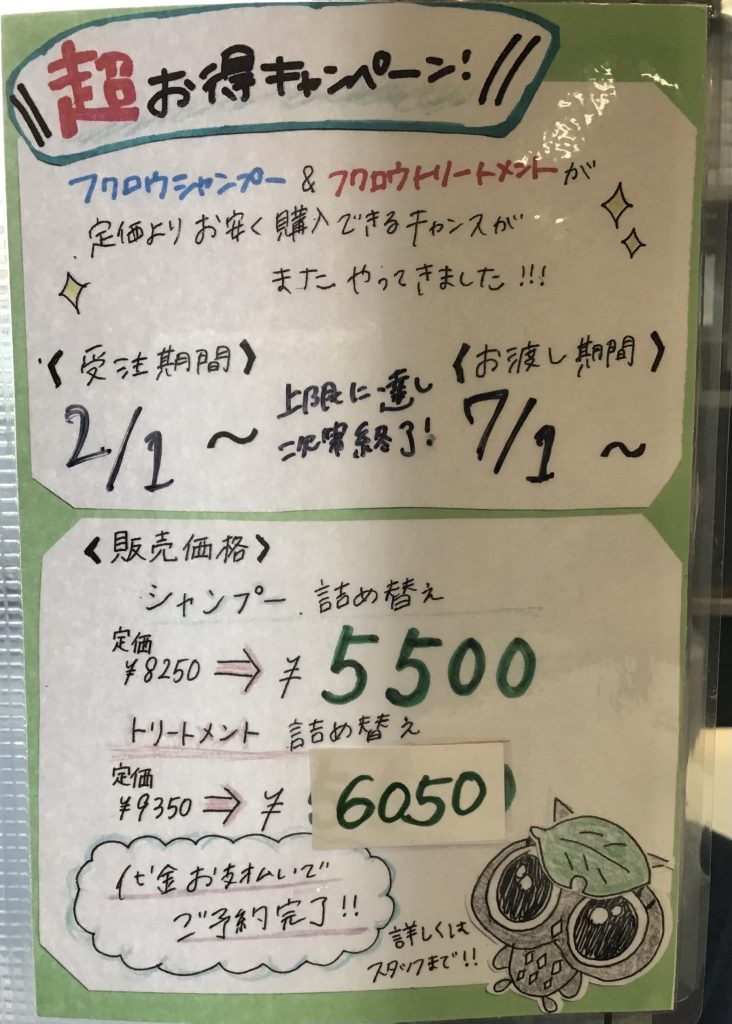 超お得キャンペーン!
フクロウシャンプー & フクロウトリートメントが
定価よりお安く購入できるチャンスが
またやってきました!!!
〈受注期間〉
2/1～
上限に達し
次第終了!
〈お渡し期間〉
7/1～
〈販売価格〉
シャンプー 詰め替え
定価
¥8250 ⇒ ¥5500
トリートメント 詰め替え
定価
¥9350 ⇒ ¥6050
代金お支払いで
ご予約完了!!
詳しくは
スタッフまで!!